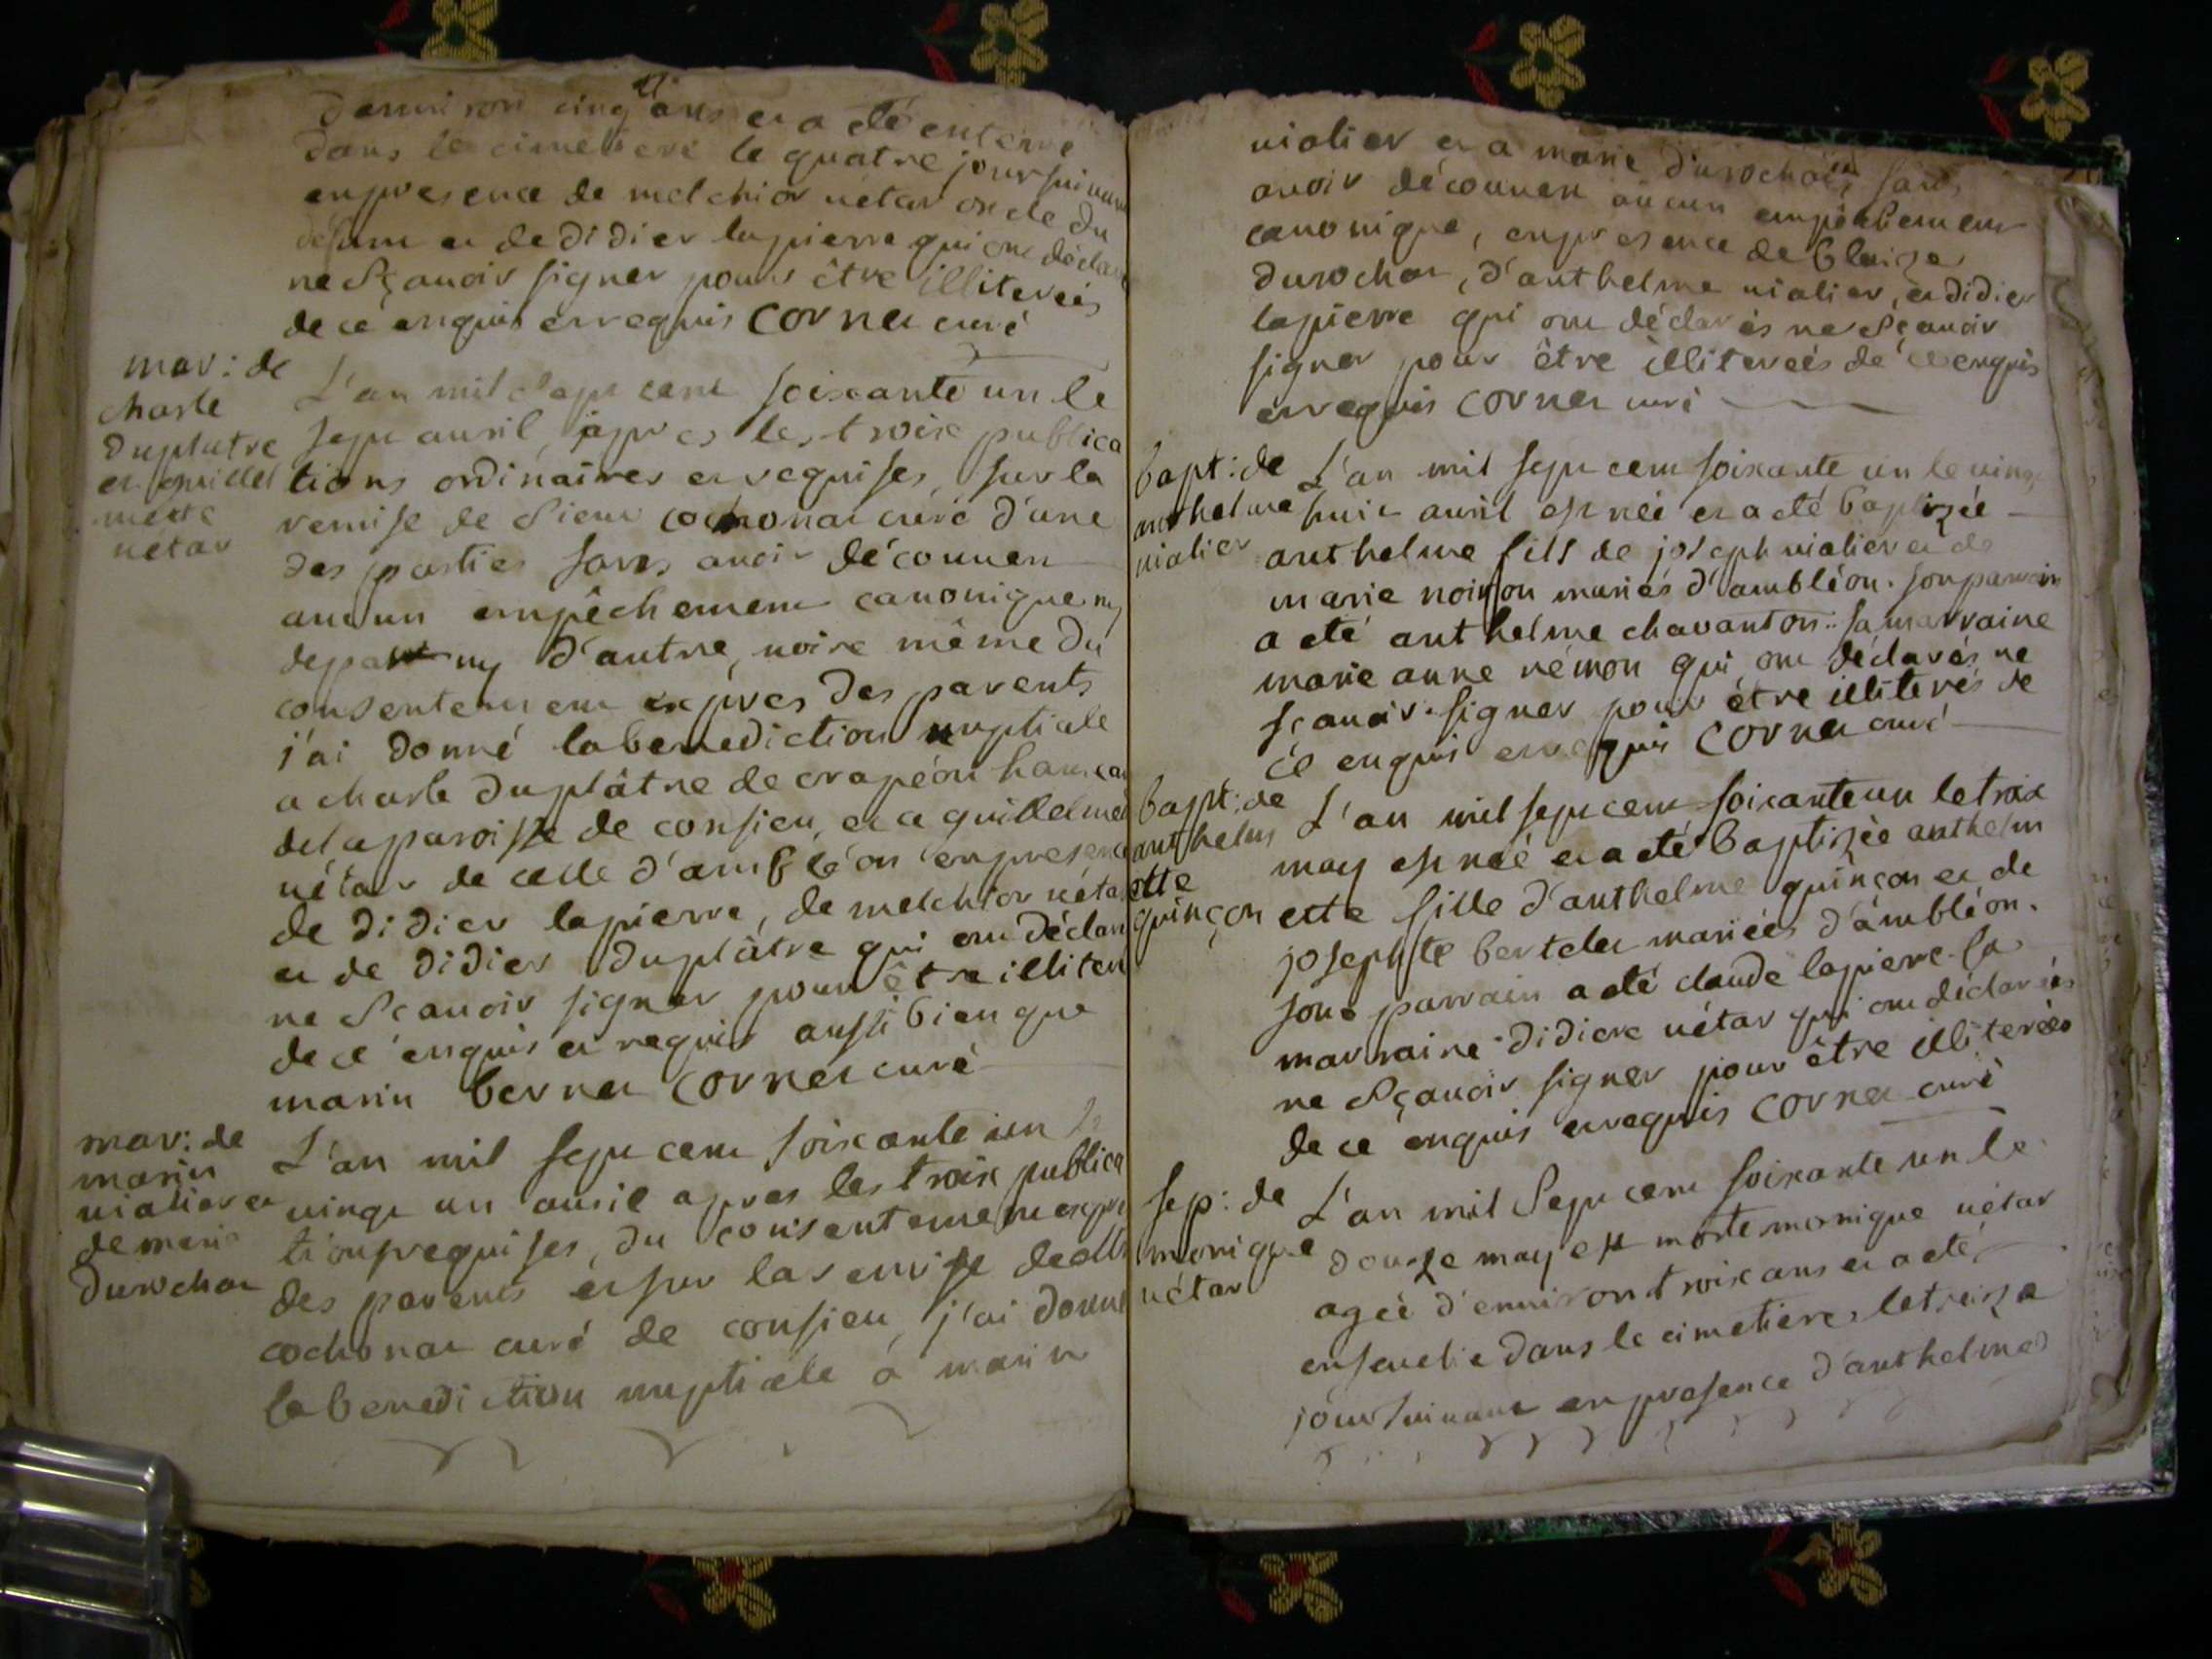 d'environ cinq ans et a été enterré
dans le cimetiere le quatre jour suivant
en presence de melchior uétar oncle du
défunt et de didier lapierre qui ont déclar
ne sçauoir signer pour être illiterées
de ce enquis et requis cornet curé
mar: de
charle
duplatre
et guillel
mette
uétar
L'an mil sept cent soixante un le
sept auril, apres les troix publica
tions ordinaires et requises, sur la
remise de sieur cochonat curé d'une
des parties sans auoir découuert
aucun empêchement canonique ny
depart ny d'autre, uoire même du
consentement expres des parents
j'ai donné la benediction nuptiale
a charle duplâtre de crapéou
de la paroisse de consieu, et a guillelmet
uétar de celle d'ambléon en presence
de didier lapierre, de melchior uéta
et de didier duplâtre qui ont déclar
ne sçauoir signer pour être illiter
de ce enquis et requis aussi bien que
marin bernet cornet curé
mar: de
marin
uialier et
de marie
durochat
L'an mil sept cent soixante un le
uingt un auril apres les troix publica
tions requises, du consentement expr
des parents et sur la remise de
cochonat curé de consieu, j'ai donné
la benediction nuptiale à marin
uialier et a marie durochat sans
auoir découuert aucun empêchement
canonique, en presence de blaise
durochat, d'anthelme uialier, et didier
lapierre qui ont déclarés ne sçauoir
signer pour être illiterées de ce enquis
et requis cornet curé
bapt: de
anthelme
uialier
L'an mil sept cent soixante un le uingt
huit auril est néé et a été baptizéé
anthelme fils de joseph uialier et de
marie noiton mariés d'ambléon. son parrain
a été anthelme chauanton: sa marraine
marie anne rémon qui ont déclarés ne
sçauoir signer pour être illiterés de
ce enquis et requis cornet curé
bapt: de
anthelm
ette
guinçon
L'an mil sept cent soixante un le troix
may est néé et a été baptizée anthelm
ette fille d'anthelme guinçon et de
josephte bertelet mariées d'ambléon.
son parrain a été claude lapierre. sa
marraine didiere uétar qui ont déclarées
ne sçauoir signer pour être illiterées
de ce enquis et requis cornet curé
sep: de
monique
uétar
L'an mil sept cent soixante un le
douze may est morte monique uétar
agéé d'environ troix ans et a été
enseuelie dans le cimetiere le treize
jour suiuant en presence d'anthelme